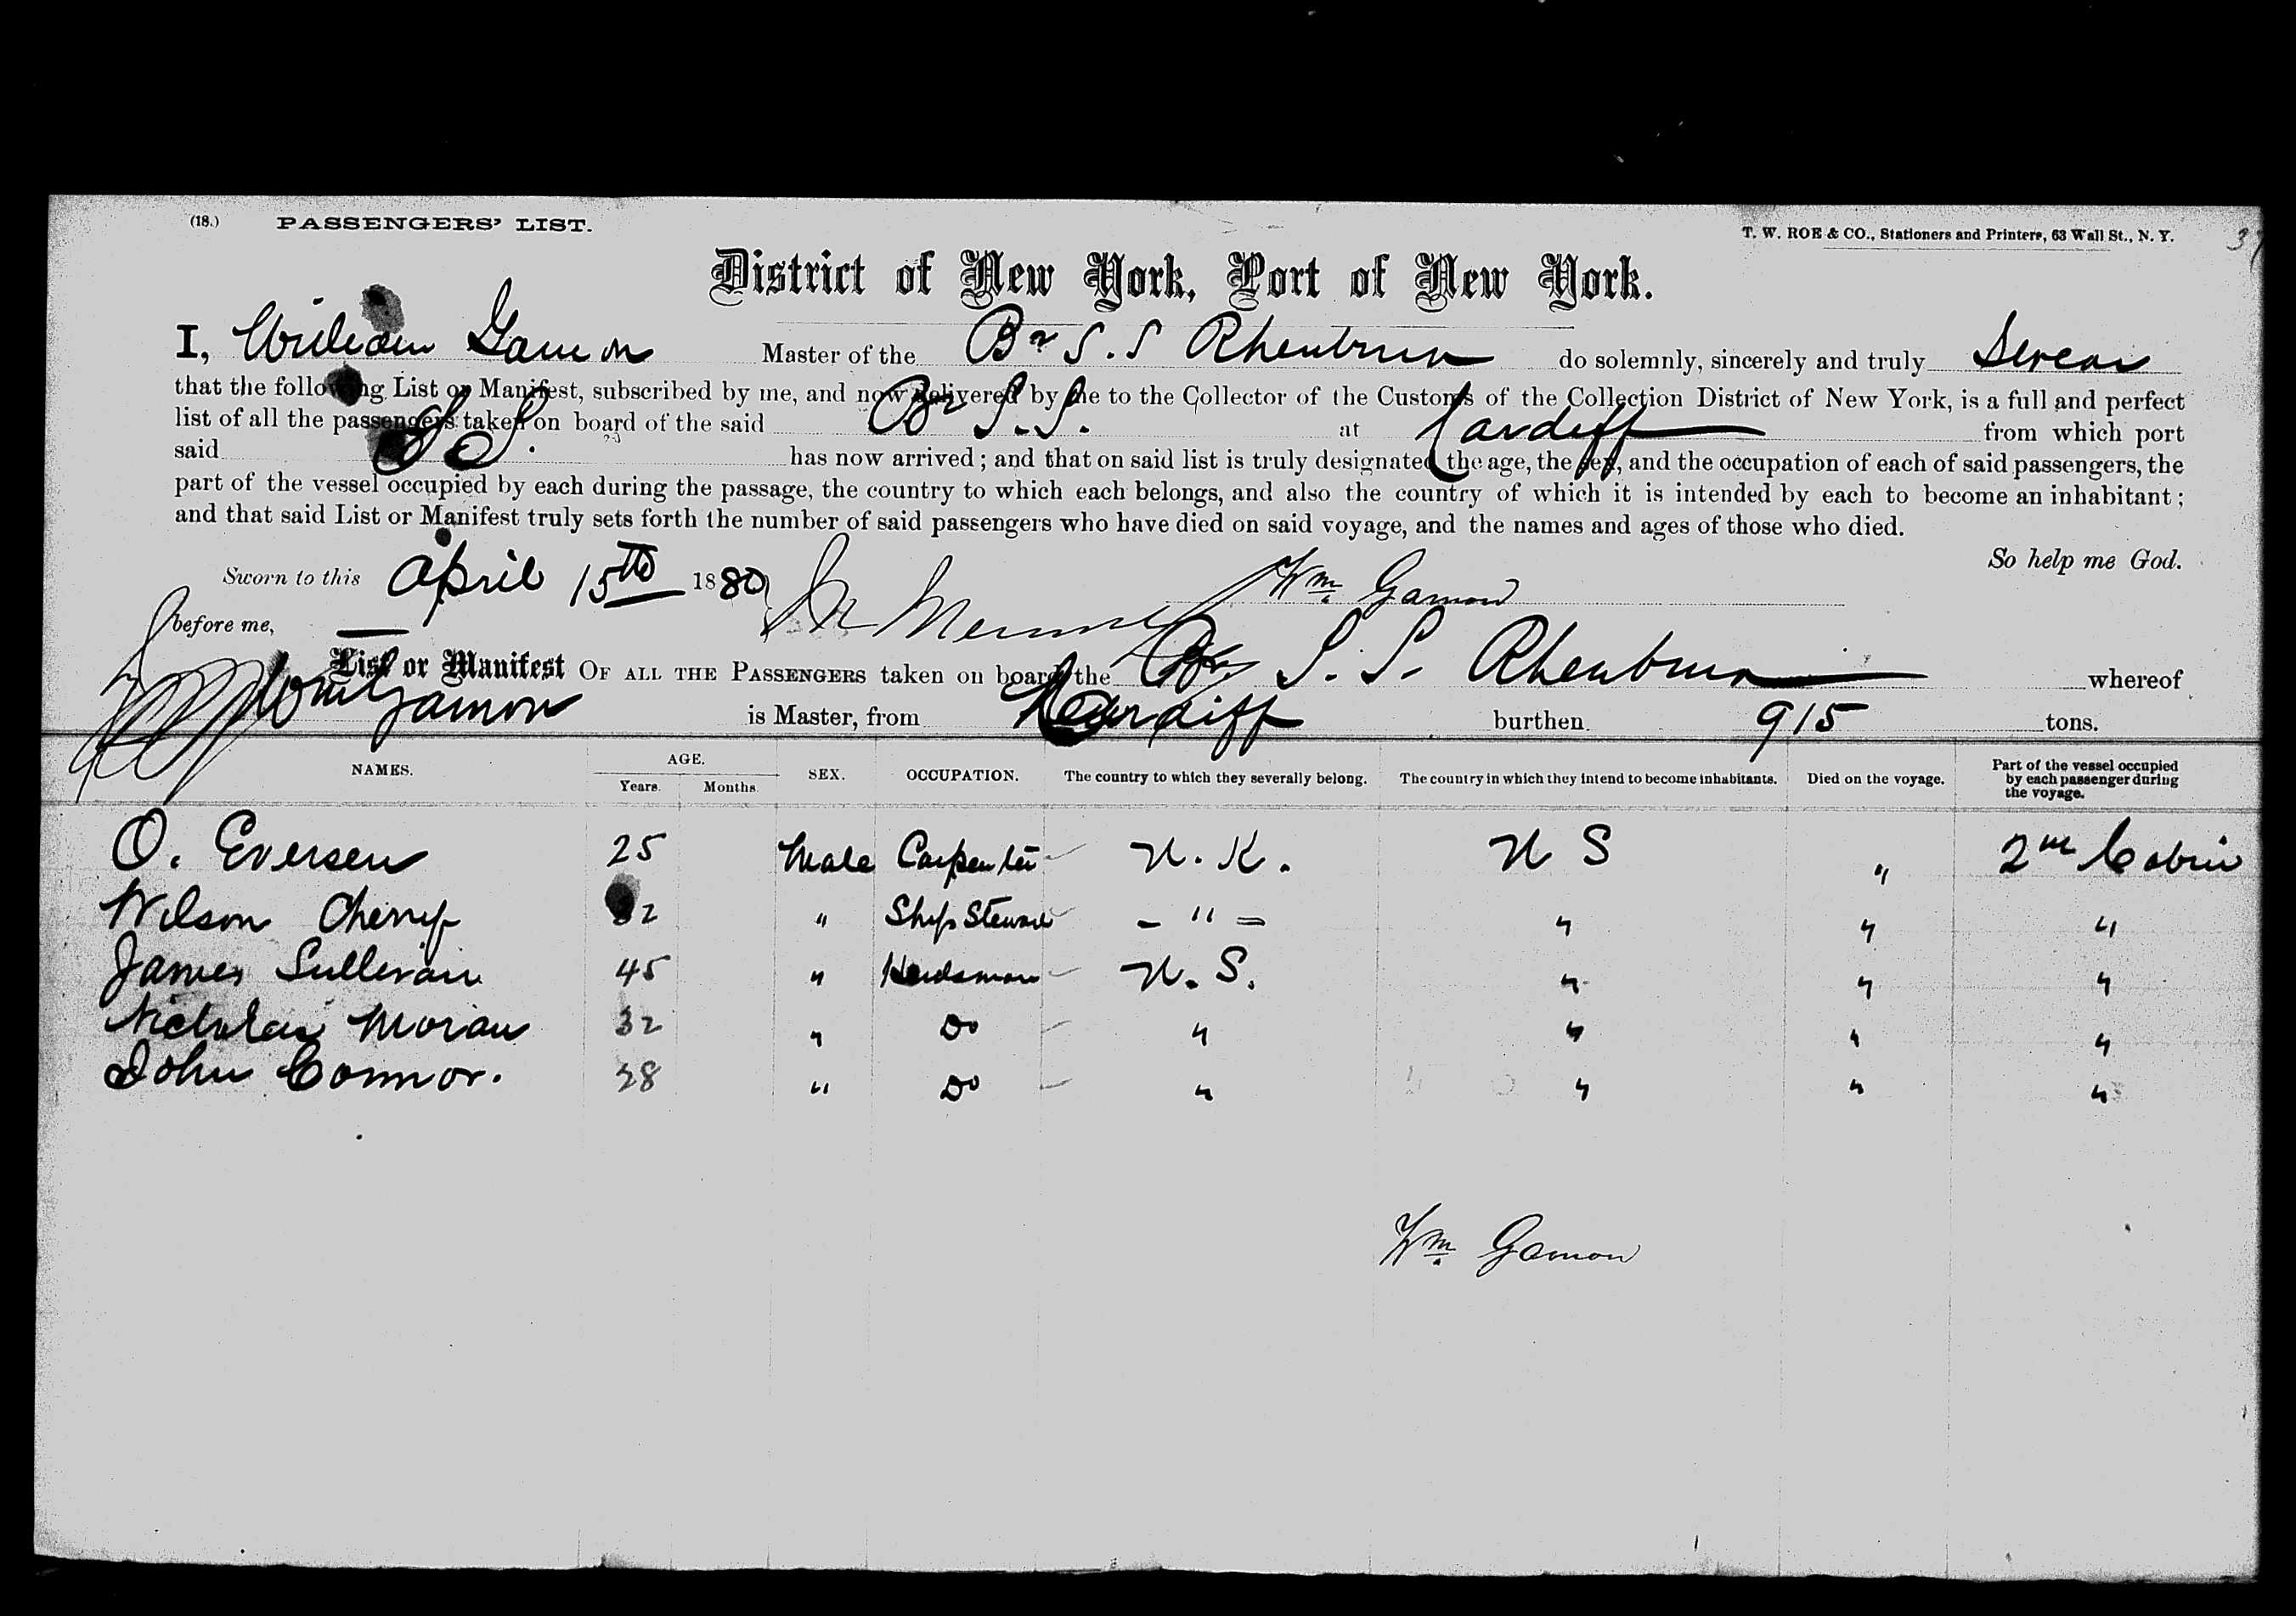 (18.) PASSENGERS' LIST. T. W. ROE & CO., Stationers and Printers, 63 Wall St., N. Y.
District of New York, Port of New York.
I, William Gamon Master of the Br S.S Rhenbrun do solemnly, sincerely and truly Swear
that the following List or Manifest, subscribed by me, and now delivered by me to the Collector of the Customs of the Collection District of New York, is a full and perfect
list of all the passengers taken on board of the said Br S.S. at Cardiff from which port
said S.S. has now arrived; and that on said list is truly designated the age, the sex, and the occupation of each of said passengers, the
part of the vessel occupied by each during the passage, the country to which each belongs, and also the country of which it is intended by each to become an inhabitant;
and that said List or Manifest truly sets forth the number of said passengers who have died on said voyage, and the names and ages of those who died.
So help me God.
Sworn to this April 15th 1880 Wm. Gamon
before me,
List or Manifest OF ALL THE PASSENGERS taken on board the Br S. S. Rhenbrun whereof
Wm Gamon is Master, from Cardiff burthen 915 tons.
NAMES. AGE. Years. Months. SEX. OCCUPATION. The country to which they severally belong. The country in which they intend to become inhabitants. Died on the voyage. Part of the vessel occupied by each passenger during the voyage.
O. Eversen 25 Male Carpenter U. K. U S " 2nd Cabin
Wilson Cherry 32 " Ships Steward - " = " " "
James Sullivan 45 " Herdsman U. S. " " "
Nicholas Moran 32 " Do " " " "
John Connor. 28 " Do " " " "
Wm. Gamon